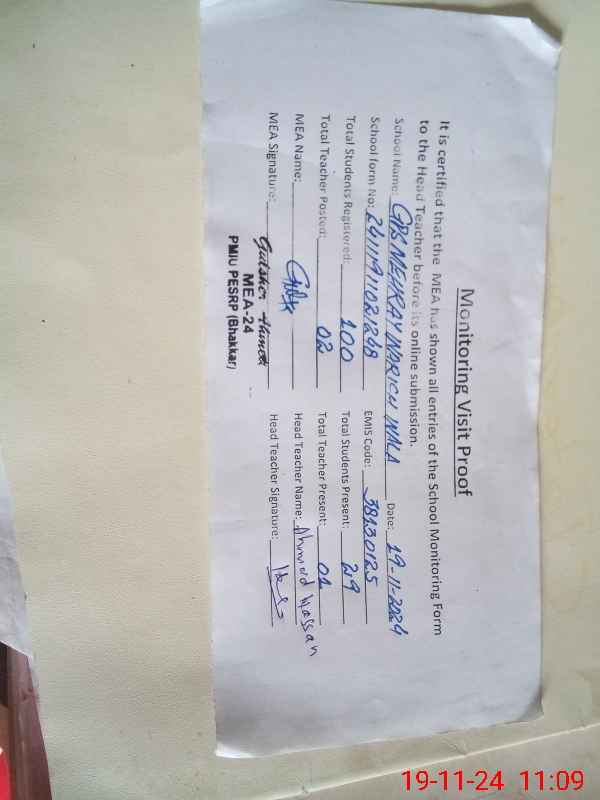 Monitoring Visit Proof
It is certified that the MEA has shown all entries of the School Monitoring Form
to the Head Teacher before its online submission.
School Name: GPS MEHRAY WARICH WALA Date: 19-11-2024
School form No: 24111911021248 EMIS Code: 38230125
Total Students Registered: 100 Total Students Present: 29
Total Teacher Posted: 02 Total Teacher Present: 01
MEA Name: Head Teacher Name: Ahmad Hassan
MEA Signature: Head Teacher Signature:
Gulsher Ahmed
MEA-24
PMIU PESRP (Bhakkar)
19-11-24 11:09